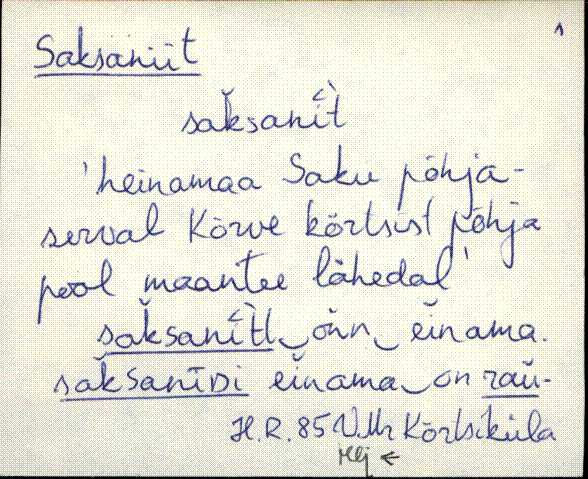 1
Saksaniit
sak̆sanì̆t
'heinamaa Saku põhja-
serval Kõrve kõrtsist põhja
pool maantee lähedal'
sak̆sanì̆tl‿on̆n‿ein̆ama.
sak̆sanīDi ein̆ama‿on raŭ̯-
H.R. 85 Kõrtsiküla